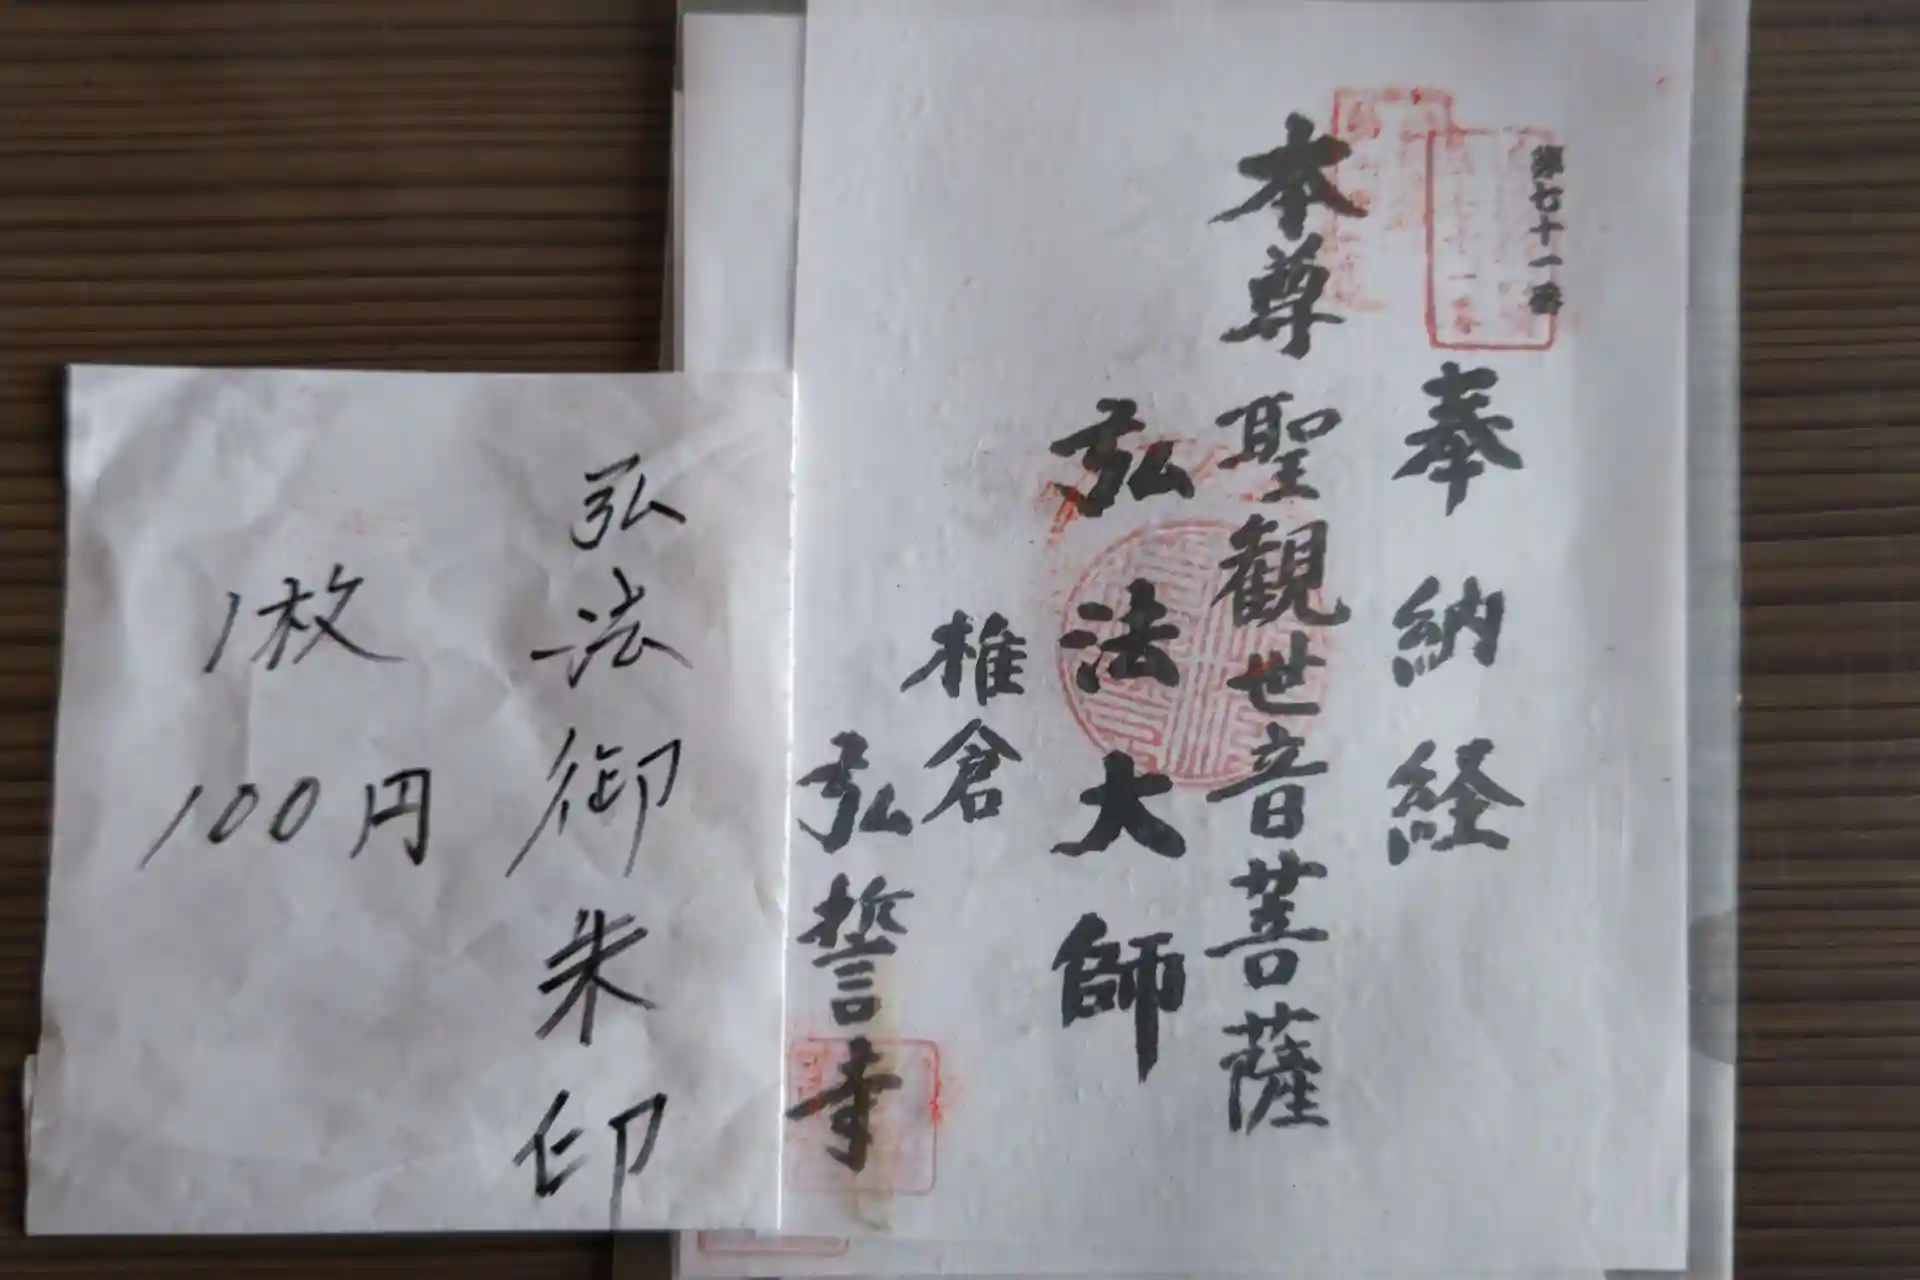 第七十一番
奉納経
本尊聖観世音菩薩
弘法大師
椎倉
弘誓寺
弘法御朱印
1枚
100円